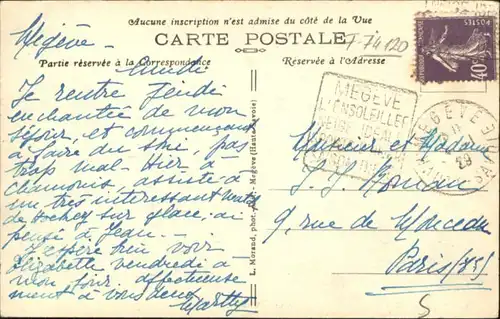 Aucune inscription n'est admise du côté de la Vue
CARTE POSTALE
7-74120
Partie réservée à la Correspondance
Réservée à l'Adresse
POSTES
40
Megève
Lundi
Je rentre jeudi
enchantée de mon
séjour, et commençant
à faire du ski, pas
trop mal. Hier à
Chamonix, assisté à
un très intéressant match
de Hockey sur glace, ai
pensé à Jean.
J'espère bien voir
Elizabeth vendredi à
mon jour. affectueuse
ment à vous deux
Marthe
L. Morand, phot.-édit. Megève (Haute-Savoie)
MEGÈVE
L'ENSOLEILLÉE
IDEAL
MEGEVE
28
Monsieur et Madame
J. J.
9, rue de Monceau
Paris (8e)
5